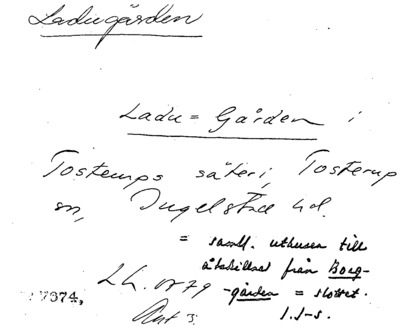 Ladugården
Ladu = Gården i
Tosterups säteri, Tosterup
sn, Ingelstad hd.
= samtl. uthusen till
åtskillnad från Borg-
-gården = slottet.
Lh. 1779
7374,
Akt 3.